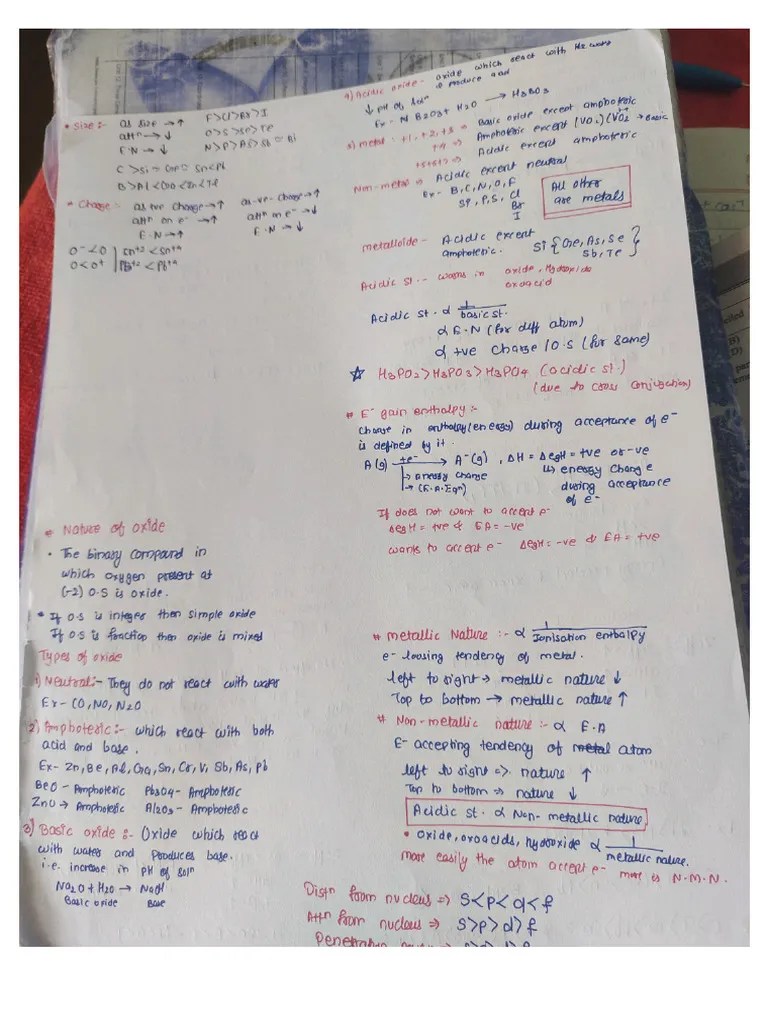 • Size :- as size → ↑ F>Cl>Br>I
attⁿ → ↓ O>S>Se>Te
E·N → ↓ N>P>As>Sb≈Bi
C >Si≈Ge≈Sn<Pb
B>Al<Ga<In<Tl
• Charge :- as +ve charge → ↑ as -ve - charge → ↑
attⁿ on e⁻ → ↑ attⁿ on e⁻ → ↓
E·N → ↑ E·N → ↓
O⁻<O | Sn⁺² <Sn⁺⁴
O<O⁺ | Pb⁺² <Pb⁺⁴
• Nature of oxide
• The binary compound in
which oxygen present at
(-2) O.S is oxide.
• If O.S is integer then simple oxide
If O.S is fraction then oxide is mixed
Types of oxide
1) Neutral:- They do not react with water
Ex- CO, NO, N₂O
2) Amphoteric:- which react with both
acid and base.
Ex- Zn, Be, Al, Ga, Sn, Cr, V, Sb, As, Pb
BeO - Amphoteric Pb₃O₄ - Amphoteric
ZnO → Amphoteric Al₂O₃ - Amphoteric
3) Basic oxide :- Oxide which react
with water and produces base.
i.e. increase in pH of solⁿ
Na₂O + H₂O → NaOH
Basic oxide Base
4) Acidic oxide - oxide which react with
& produce acid
↓ pH of solⁿ
Ex - B₂O₃ + H₂O → H₃BO₃
5) metal : +1, +2, +3 → Basic oxide except amphoteric
+4 → Amphoteric except (VO₂) → Basic
⇒ Acidic except amphoteric
Non-metal ⇒ Acidic except neutral
Ex - B, C, N, O, F
P, S, Cl
Br
I
All other
are metals
metalloide - Acidic except
amphoteric. Si {Ge, As, Se
Sb, Te }
Acidic st. - works in oxide, Hydroxide
oxoacid
Acidic st. α 1/basic st.
α E·N (for diff atom)
α +ve charge / O.S (for same)
☆ H₃PO₂>H₃PO₃>H₃PO₄ (acidic st.)
(due to cross conjugation)
# E⁻ gain enthalpy :-
change in enthalpy (energy) during acceptance of e⁻
is defined by it.
A(g) +e⁻ → A⁻(g) , ΔH = ΔegH = +ve or -ve
→ energy change ↳ energy change
→ (E.A. Egⁿ) during acceptance
of e⁻
If does not want to accept e⁻
ΔegH = +ve & EA = -ve
wants to accept e⁻ ΔegH = -ve & EA = +ve
# metallic Nature :- α 1/Ionisation enthalpy
e⁻ lousing tendency of metal.
left to right → metallic nature ↓
Top to bottom → metallic nature ↑
# Non-metallic nature :- α E·A
E⁻ accepting tendency of metal atom
left to right => nature ↑
Top to bottom => nature ↓
Acidic st. α Non-metallic nature
• oxide, oxoacids, hydroxide α 1/metallic nature.
more easily the atom accept e⁻ more is N·M·N.
Distⁿ from nucleus => S<P<d<f
Attⁿ from nucleus => S>P>d>f